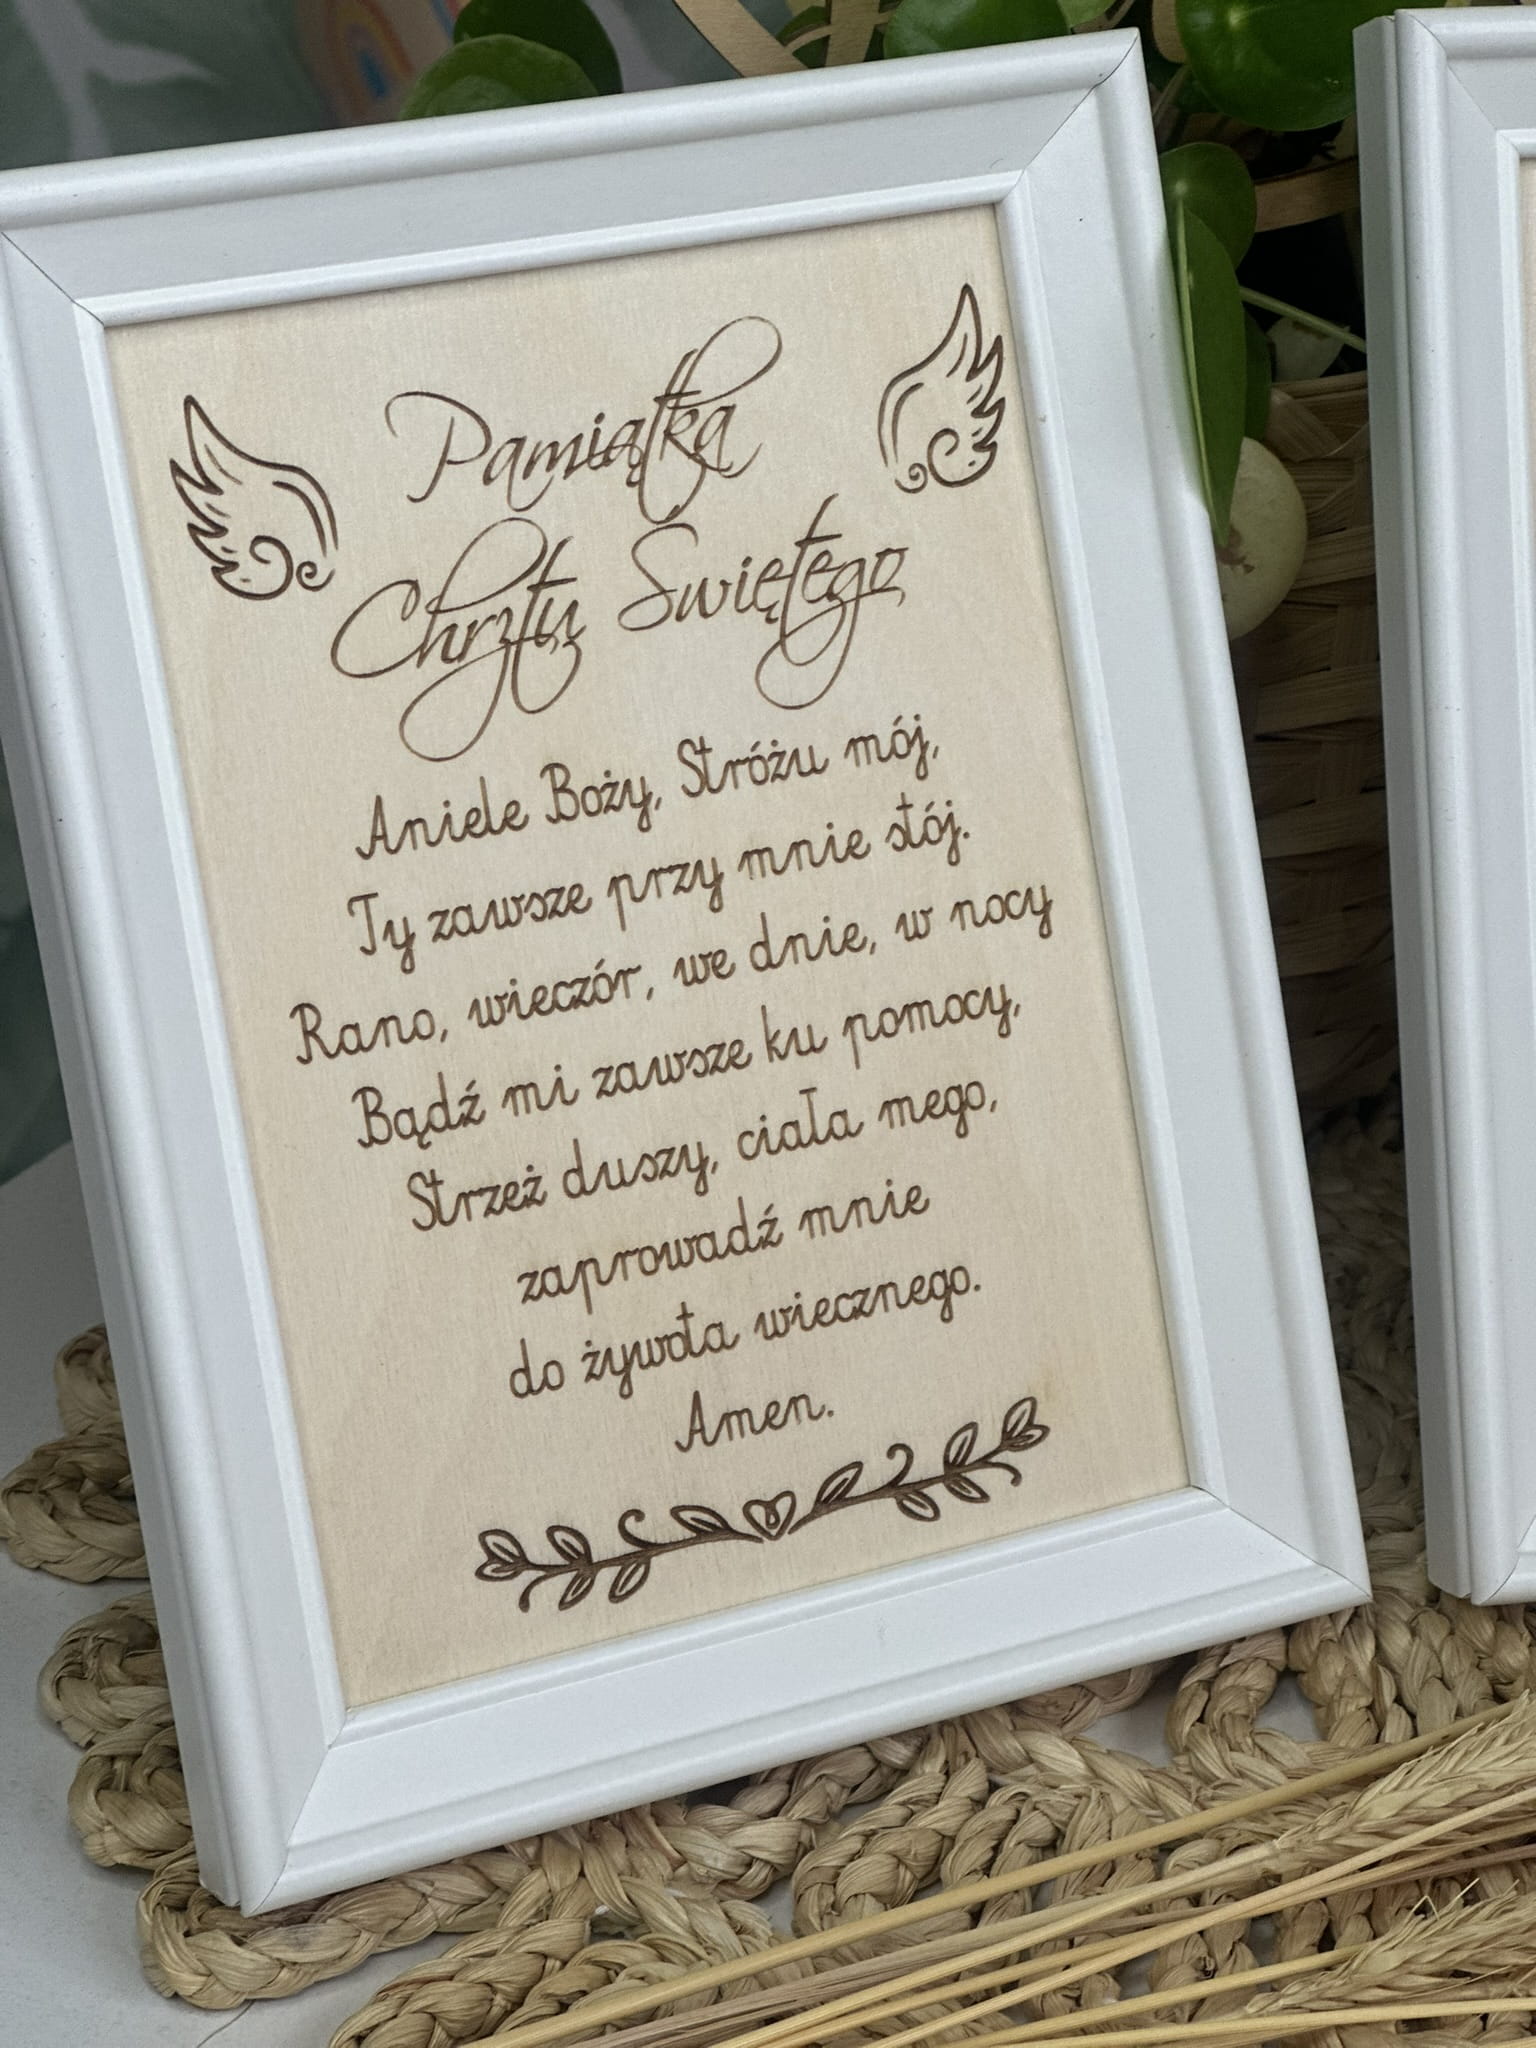 Pamiątka
Chrztu Swiętego
Aniele Boży, Stróżu mój,
Ty zawsze przy mnie stój.
Rano, wieczór, we dnie, w nocy
Bądź mi zawsze ku pomocy,
Strzeż duszy, ciała mego,
zaprowadź mnie
do żywota wiecznego.
Amen.